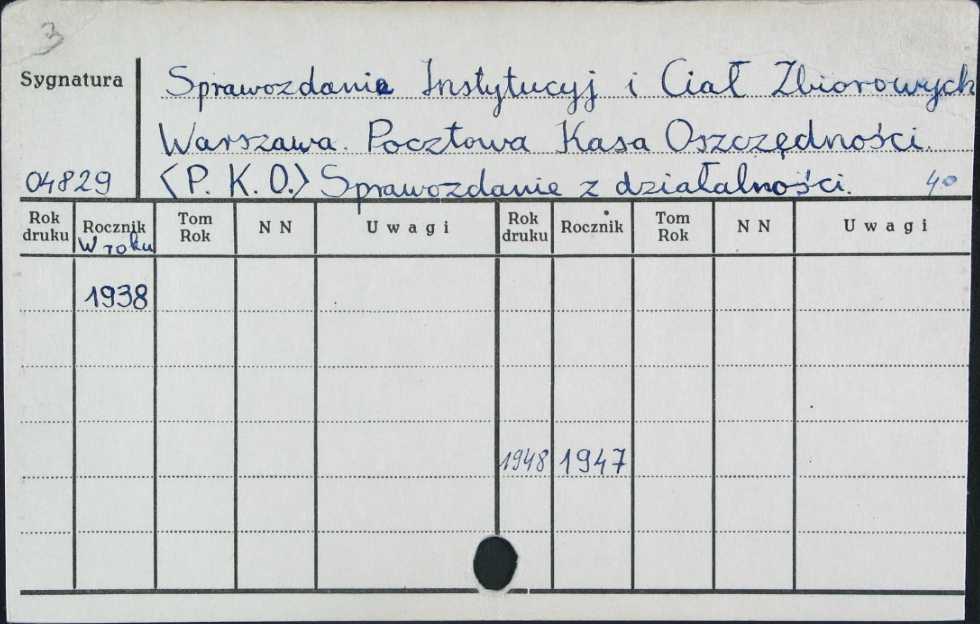 3
Sygnatura
Sprawozdania Instytucyj i Ciał Zbiorowych
Warszawa. Pocztowa Kasa Oszczędności.
04829 <P. K. O.> Sprawozdanie z działalności. 4°
Rok druku Rocznik W roku Tom Rok N N Uwagi Rok druku Rocznik Tom Rok N N Uwagi
1938
1948 1947